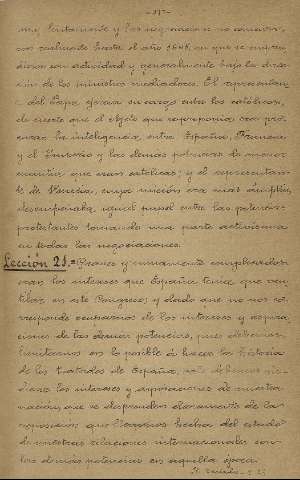 -317-
muy lentamente y las negociaciones no comenza-
ron realmente hasta el año 1646, en que se empren-
dieron con actividad y generalmente bajo la direc-
ción de los ministros mediadores. El representan-
te del Papa ejercía su cargo entre los católicos,
de suerte que el objeto que se proponía era pro-
curar la inteligencia entre España, Francia
y el Imperio y las demás potencias de menor
cuantía que eran católicas; y el representan-
te de Venecia, cuya misión era más amplia,
desempeñaba igual papel entre las potencias
protestantes tomando una parte activísima
en todas las negociaciones.
Lección 21.= Graves y sumamente complicados
eran los intereses que España tenía que ven-
tilar en este Congreso; y dado que no nos co-
rresponde ocuparnos de los intereses y aspira-
ciones de las demás potencias, pues debemos
limitarnos en lo posible á hacer la historia
de los tratados de España, solo debemos in-
dicar los intereses y aspiraciones de nuestra
nación, que se desprenden claramente de la
exposición que llevamos hecha del estado
de nuestras relaciones internacionales con
las demás potencias en aquella época.